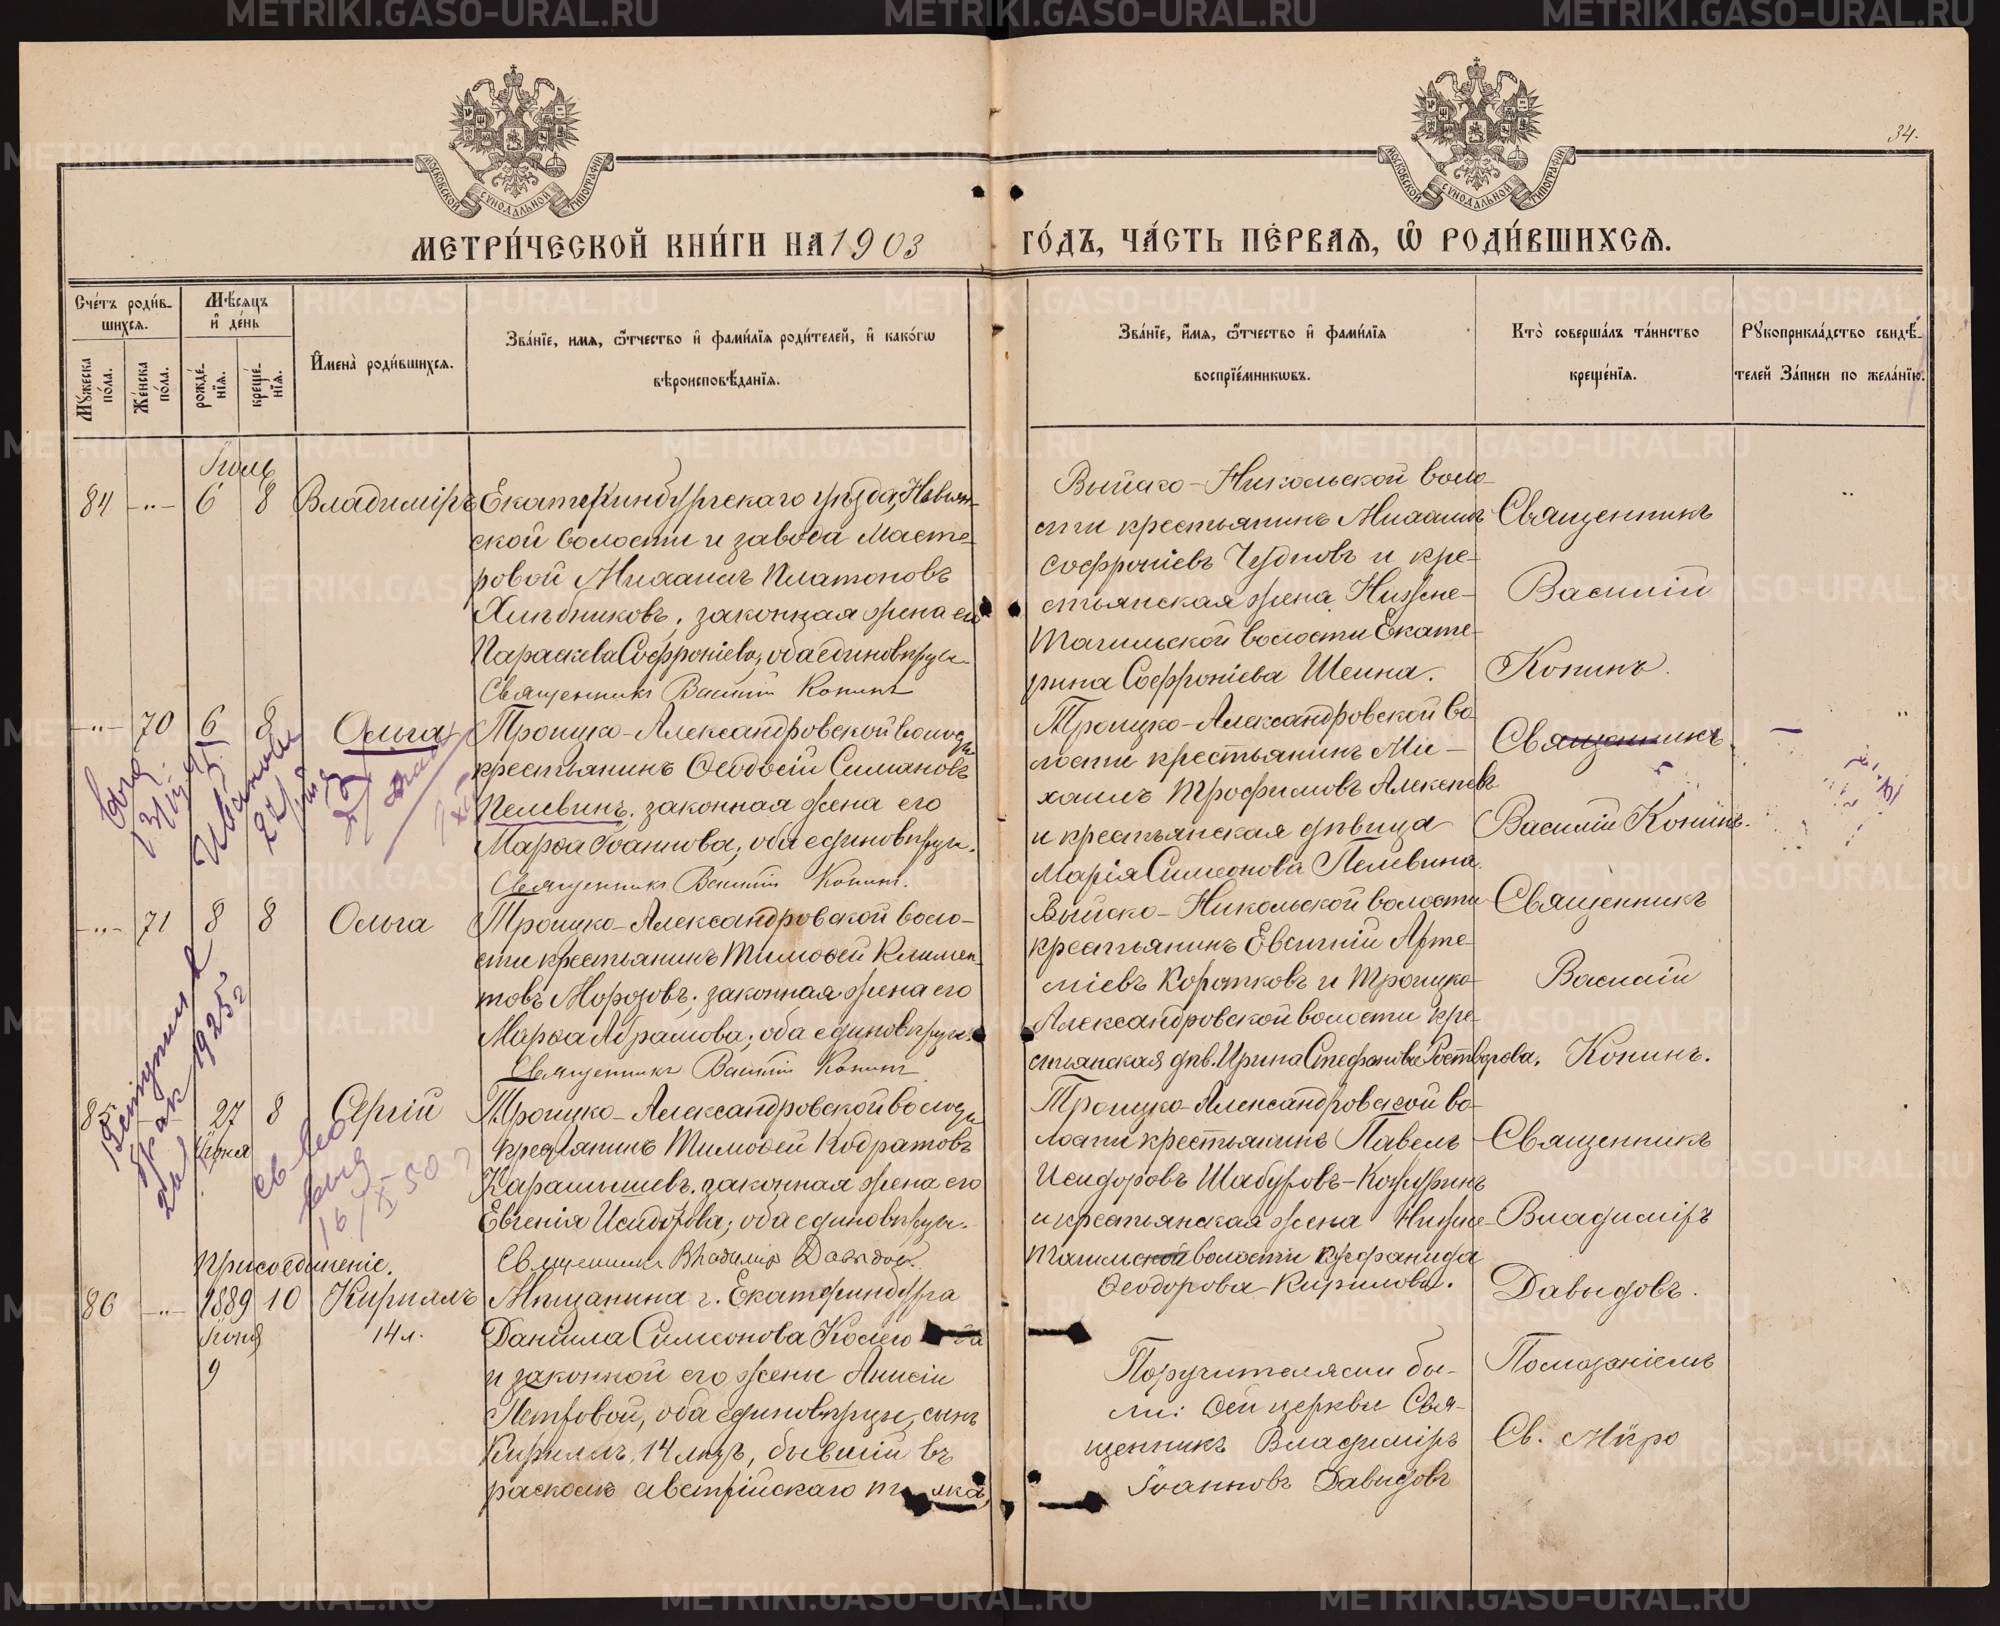 METRIKI.GASO-URAL.RU
34.
МОСКОВСКОЙ СУНОДАЛЬНОЙ ТИПОГРАФІИ
МОСКОВСКОЙ СУНОДАЛЬНОЙ ТИПОГРАФІИ
МЕТРИ́ЧЕСКОЙ КНИ́ГИ НА 1903
ГО́ДЪ, ЧА́СТЬ ПЕ́РВАѦ, Ѽ РОДИ́ВШИХСѦ.
Сче́тъ роди́в-
шихсѧ.
Мѹжеска по́ла.
Же́нска по́ла.
Мѣ́сѧцъ
и҆ де́нь
рожде́нїѧ.
креще́нїѧ.
И҆мена̀ роди́вшихсѧ.
Зва́нїе, имѧ, ѻ҆́тчество и҆ фами́лїѧ роди́телей, и҆ како́гѡ
вѣроисповѣ́данїѧ.
Зва́нїе, и҆́мѧ, ѻ҆́тчество и҆ фами́лїѧ
воспрїе́мникѡвъ.
Кто̀ соверша́лъ та́инство
креще́нїѧ.
Рѹкоприкла́дство свидѣ́-
телей За́писи по жела́нїю.
Іюль
84 -"- 6 8 Владиміръ
Екатеринбургскаго уѣзда, Невьян-
ской волости и завода Масте-
ровой Михаилъ Платоновъ
Хлѣбниковъ, законная жена его
Параскева Софроніева, оба единовѣрцы.
Священникъ Василій Конинъ
Выйско-Никольской воло-
сти крестьянинъ Михаилъ
Софроніевъ Чудновъ и кре-
стьянская жена Нижне-
Тагильской волости Екате-
рина Софроніева Шеина.
Священникъ
Василій
Конинъ.
-"- 70 6 8 Ольга
Троицко-Александровской волости
крестьянинъ Ѳеодосій Симановъ
Пелевинъ, законная жена его
Марѳа Іоаннова, оба единовѣрцы.
Священникъ Василій Конинъ.
Троицко-Александровской во-
лости крестьянинъ Ми-
хаилъ Трофимовъ Алексѣевъ
и крестьянская дѣвица
Марія Симеонова Пелевина.
Священникъ
Василій Конинъ.
-"- 71 8 8 Ольга
Троицко-Александровской воло-
сти крестьянинъ Тимоѳей Климен-
товъ Морозовъ, законная жена его
Марѳа Абрамова; оба единовѣрцы.
Священникъ Василій Конинъ
Выйско-Никольской волости
крестьянинъ Евсигній Арте-
міевъ Коротковъ и Троицко-
Александровской волости кре-
стьянская дѣв. Ирина Стефанова Ростворова.
Священникъ
Василій
Конинъ.
Вступила в
брак 1925 г
85 27 8 Сергій
Іюня
Троицко-Александровской волости
крестьянинъ Тимоѳей Кодратовъ
Карамышевъ, законная жена его
Евгенія Исидорова; оба единовѣрцы.
Священникъ Владиміръ Давыдовъ.
Троицко-Александровской во-
лости крестьянинъ Павелъ
Исидоровъ Шабуровъ-Кожуринъ
и крестьянская жена Нижне-
Тагильской волости
Ѳеодорова Кирилова.
Священникъ
Владиміръ
Давыдовъ.
Присоединеніе.
86 -"- 1889 10 Кириллъ
Іюня 14 л.
9
Мѣщанина г. Екатеринбурга
Даніила Симеонова
и законной его жены Анисіи
Петровой, оба единовѣрцы, сынъ
Кириллъ, 14 лѣтъ, бывшій въ
расколѣ австрійскаго
Поручителями бы-
ли: Сей церкви Свя-
щенникъ Владиміръ
Іоанновъ Давыдовъ
Помазаніемъ
Св. Мѵро